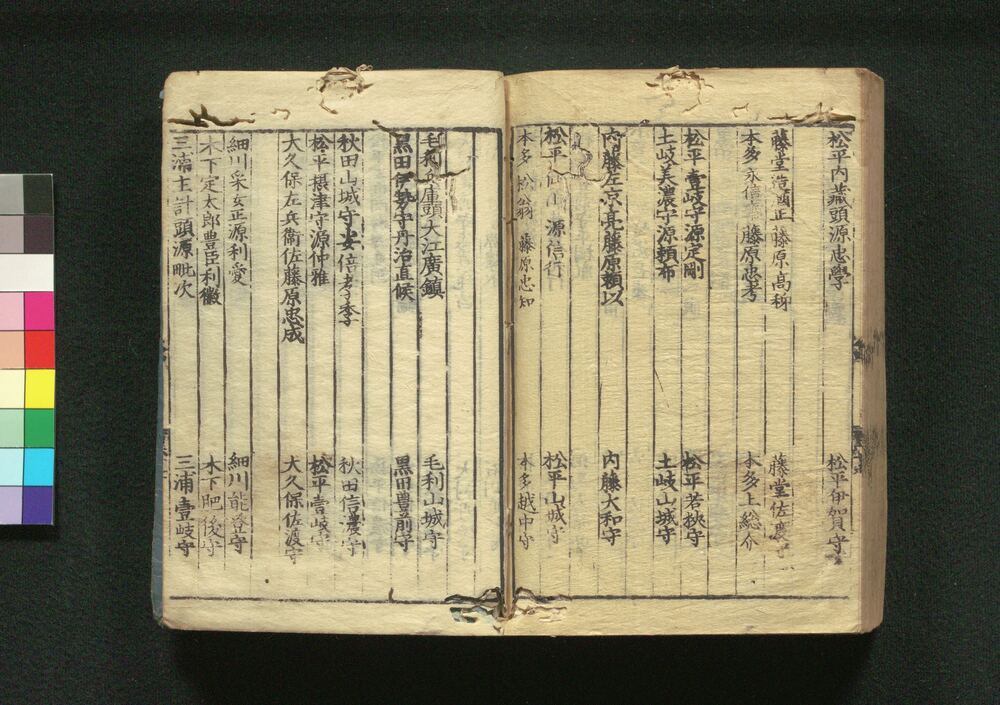 松平内蔵頭源忠學 松平伊加賀守
藤堂造酒正藤原高稱 藤堂佐渡守
本多永信 藤原忠考 本多上総介
松平壹岐守源定剛 松平若狭守
土岐美濃守源頼布 土岐山城守
内藤左京亮藤原頼以 内藤大和守
松平 源信行 松平山城守
本多松翁 藤原忠知 本多越中守
毛利兵庫頭大江廣鎮 毛利山城守
黒田伊勢守丹治直候 黒田豊前守
秋田山城守安倍孝季 秋田信濃守
松平摂津守源仲雅 松平壹岐守
大久保左兵衞佐藤原忠成 大久保佐渡守
細川采女正源利愛 細川能登守
木下定太郎豊臣利徽 木下肥後守
三浦主計頭源毗次 三浦壹岐守